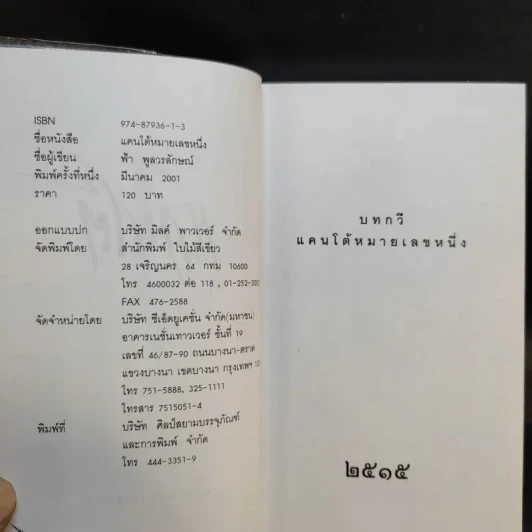 ISBN 974-87936-1-3
ชื่อหนังสือ แคนโต้หมายเลขหนึ่ง
ชื่อผู้เขียน ฟ้า พูลวรลักษณ์
พิมพ์ครั้งที่หนึ่ง มีนาคม 2001
ราคา 120 บาท
ออกแบบปก บริษัท มิลค์ พาวเวอร์ จำกัด
จัดพิมพ์โดย สำนักพิมพ์ ใบไม้สีเขียว
28 เจริญนคร 64 กทม 10600
โทร 4600032 ต่อ 118 , 01-252-3001
FAX 476-2588
จัดจำหน่ายโดย บริษัท ซีเอ็ดยูเคชั่น จำกัด(มหาชน)
อาคารเนชั่นทาวเวอร์ ชั้นที่ 19
เลขที่ 46/87-90 ถนนบางนา-ตราด
แขวงบางนา เขตบางนา กรุงเทพฯ
โทร 751-5888, 325-1111
โทรสาร 7515051-4
พิมพ์ที่ บริษัท ศิลป์สยามบรรจุภัณฑ์
และการพิมพ์ จำกัด
โทร 444-3351-9
บทกวี
แคนโต้หมายเลขหนึ่ง
๒๕๑๕